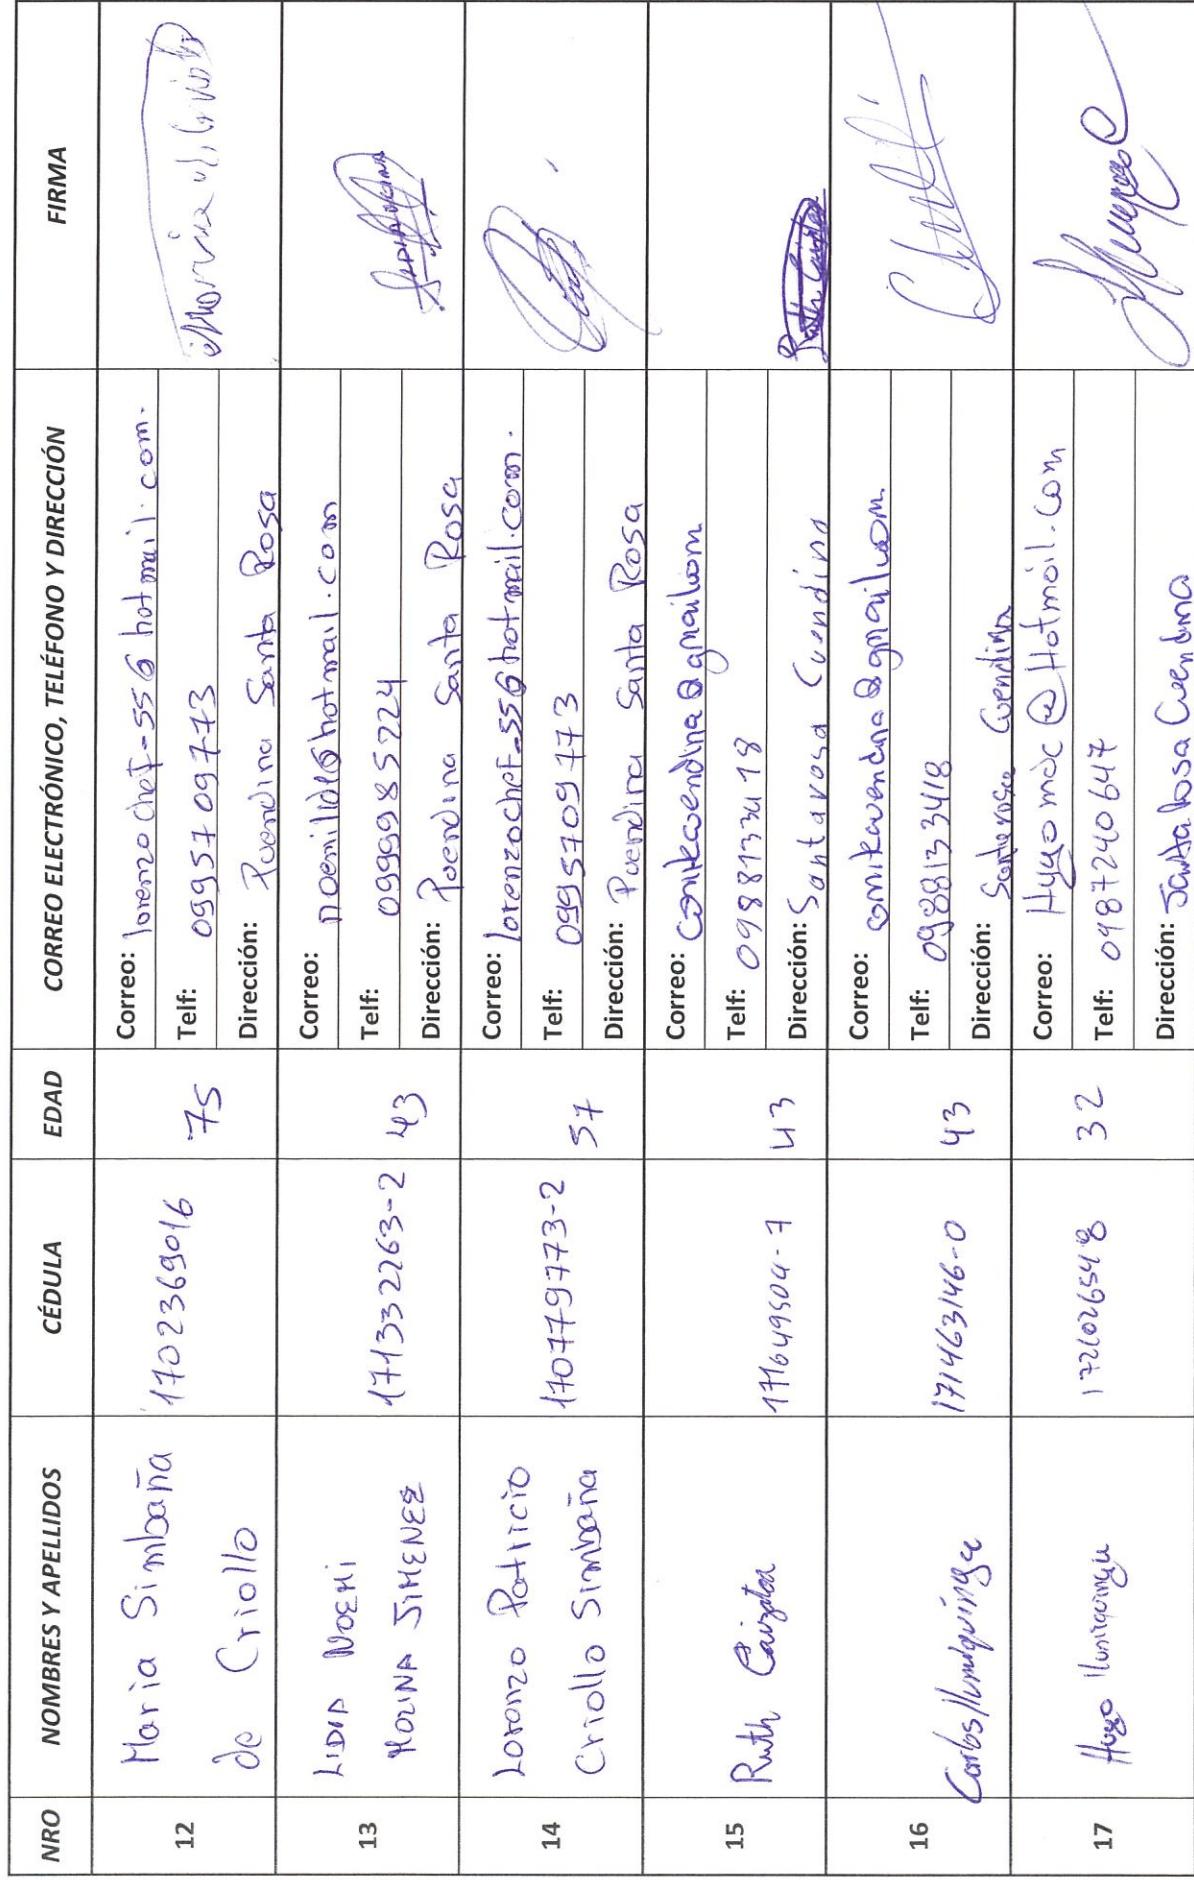 NRO NOMBRES Y APELLIDOS CÉDULA EDAD CORREO ELECTRÓNICO, TELÉFONO Y DIRECCIÓN FIRMA
12
Maria Simbaña
de Criollo
1702369016
75
Correo: lorenzochef-55@hotmail.com.
Telf: 0995709773
Dirección: Puendina Santa Rosa
13
LIDIA NOEMI
MOLINA JIMENEZ
171332263-2
43
Correo: noemilidi@hotmail.com
Telf: 0999985224
Dirección: Puendina Santa Rosa
14
Lorenzo Patricio
Criollo Simbaña
170779773-2
57
Correo: lorenzochef-55@hotmail.com.
Telf: 0995709773
Dirección: Puendina Santa Rosa
15
Ruth
171649504-7
43
Correo:
Telf: 0988133418
Dirección: Santarosa Cuendina
16
Carlos Ilumiquinga
171463146-0
43
Correo:
Telf: 0988133418
Dirección: Santa rosa Cuendina
17
Hugo Ilumiquinga
1721026548
32
Correo:
Telf: 0987240647
Dirección: Santa Rosa Cuendina